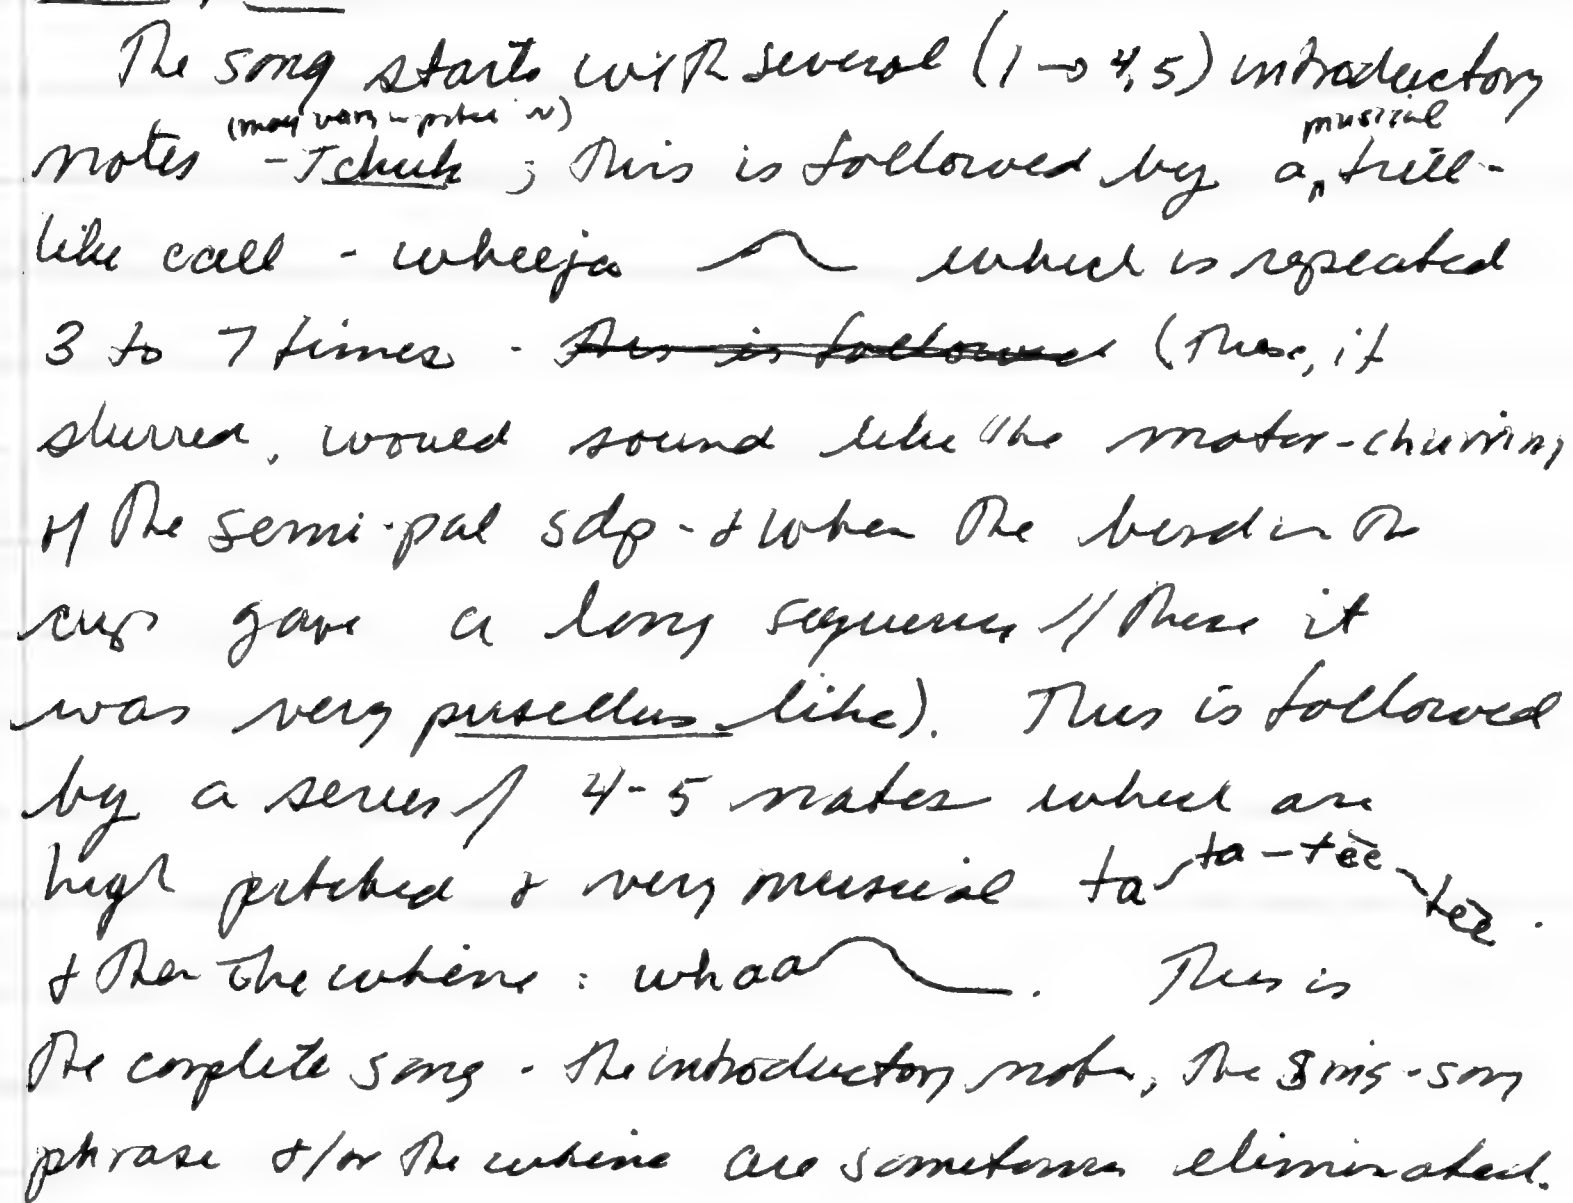 The song starts with several (1→4,5) introductory
(may vary in pitch ~) musical
notes - Tchuk ; This is followed by a trill-
like call - wheeja which is repeated
3 to 7 times - This is followed (These, if
slurred, would sound like the motor-churring
of the semi-pal sdp - & when the bird in the
cup gave a long sequence of these it
was very pusillus like). This is followed
by a series of 4-5 notes which are
high pitched & very musical ta ta-tēē tēē.
& then the whine : whaa. This is
the complete song - the introductory notes, the sing-song
phrase &/or the whine are sometimes eliminated.